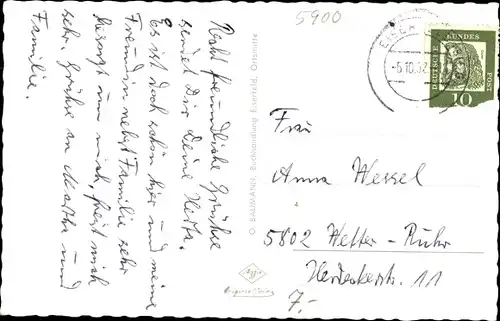 Recht freundliche Grüße
sendet Dir Deine Herta.
Es ist doch schön hier und meine
Freundin nebst Familie sehr
besorgt um mich, freut mich
sehr. Grüße an Mutter und
Familie.
G. BAUMANN, Buchhandlung Eiserfeld,
5900
EISER
-5.10.62
DEUTSCHE BUNDESPOST
10
Frau
Anna Wessel
5802 Wetter-Ruhr
Herdeckerstr. 11
7.-